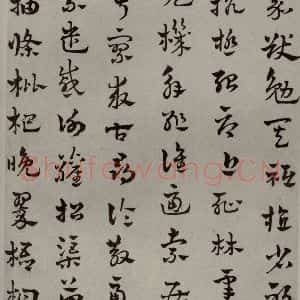 嘉猷勉其祗植省躬
抗極殆辱近恥林皋
見機解組誰逼索居
寂寥求古尋論散慮
累遣慼謝歡招渠荷
抽條枇杷晚翠梧桐
Shufawang.CN